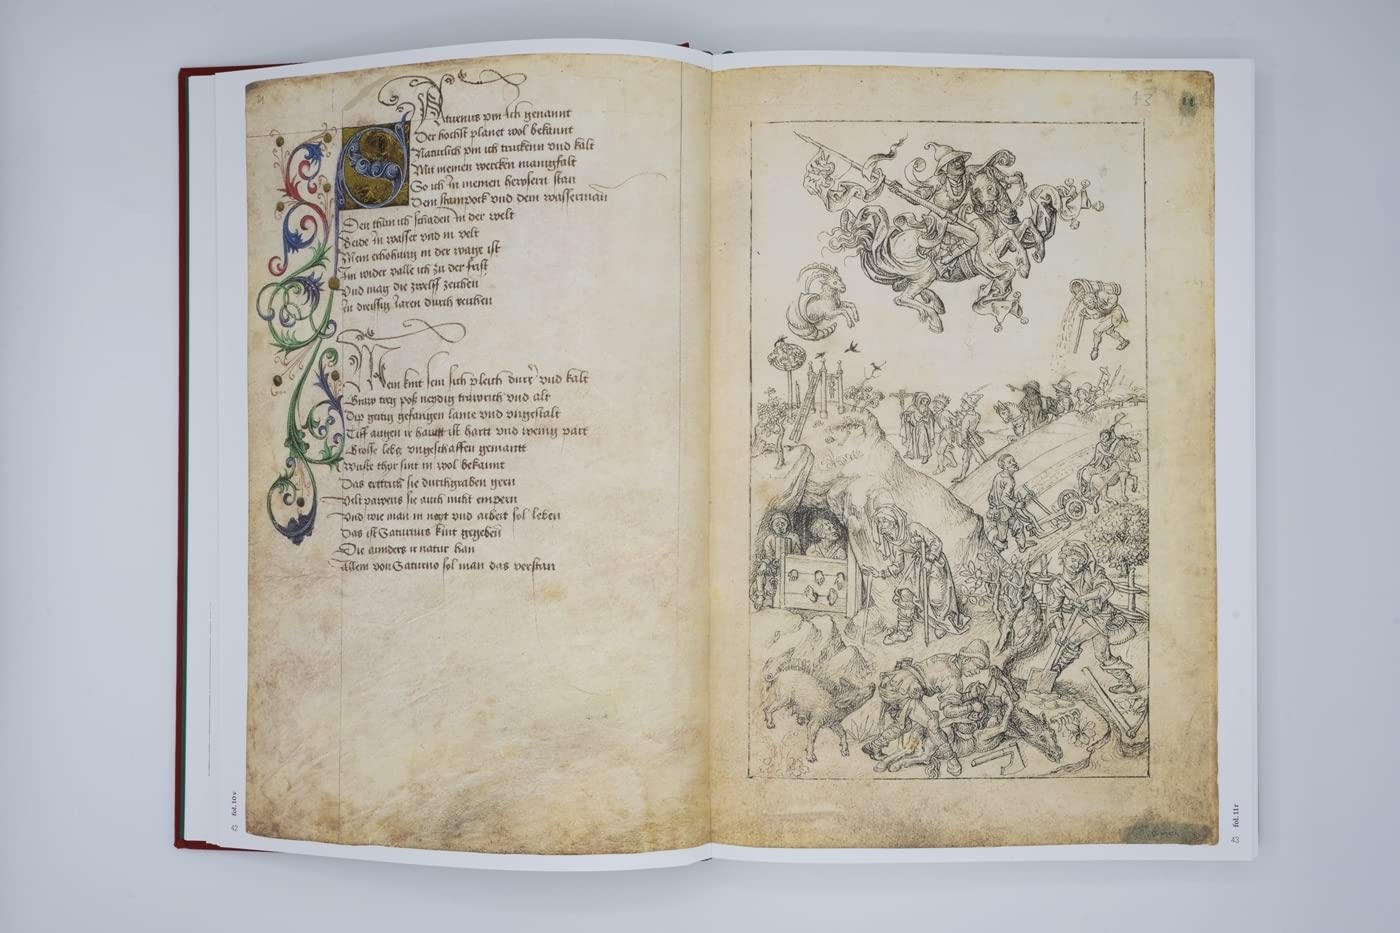 Saturnus pin ich genannt
Der hochst planet wol bekannt
Naturlich pin ich truckenn vnd kalt
Mit meinen wercken manigfalt
So ich in meinen hewsern stan
Dem stainpock vnd dem wasserman
Den thun ich schaden in der welt
Beide in wasser vnd in velt
Mein erhohung in der wage ist
Im wider valle ich zu der frist
Vnd mag die zwelff zeichen
In dreissig Jaren durch reichen
Mein kint sein sich pleich durr vnd kalt
Graw treg poß neydig trawrich vnd alt
Dip geitig gefangen lame vnd vngestalt
Tiff augen ir hawtt ist hartt vnd wenig part
Grosse lebs vngeschaffen gewantt
Wuste thyr sint in wol bekannt
Das ertrich sie durchgraben gern
Velt pawens sie auch nicht enpern
Vnd wie man in nott vnd arbeit sol leben
Das ist Saturnus kint gegeben
Die annders ir natur han
Allein von Saturno sol man das verstan
fol. 10v
43
11
fol. 11r